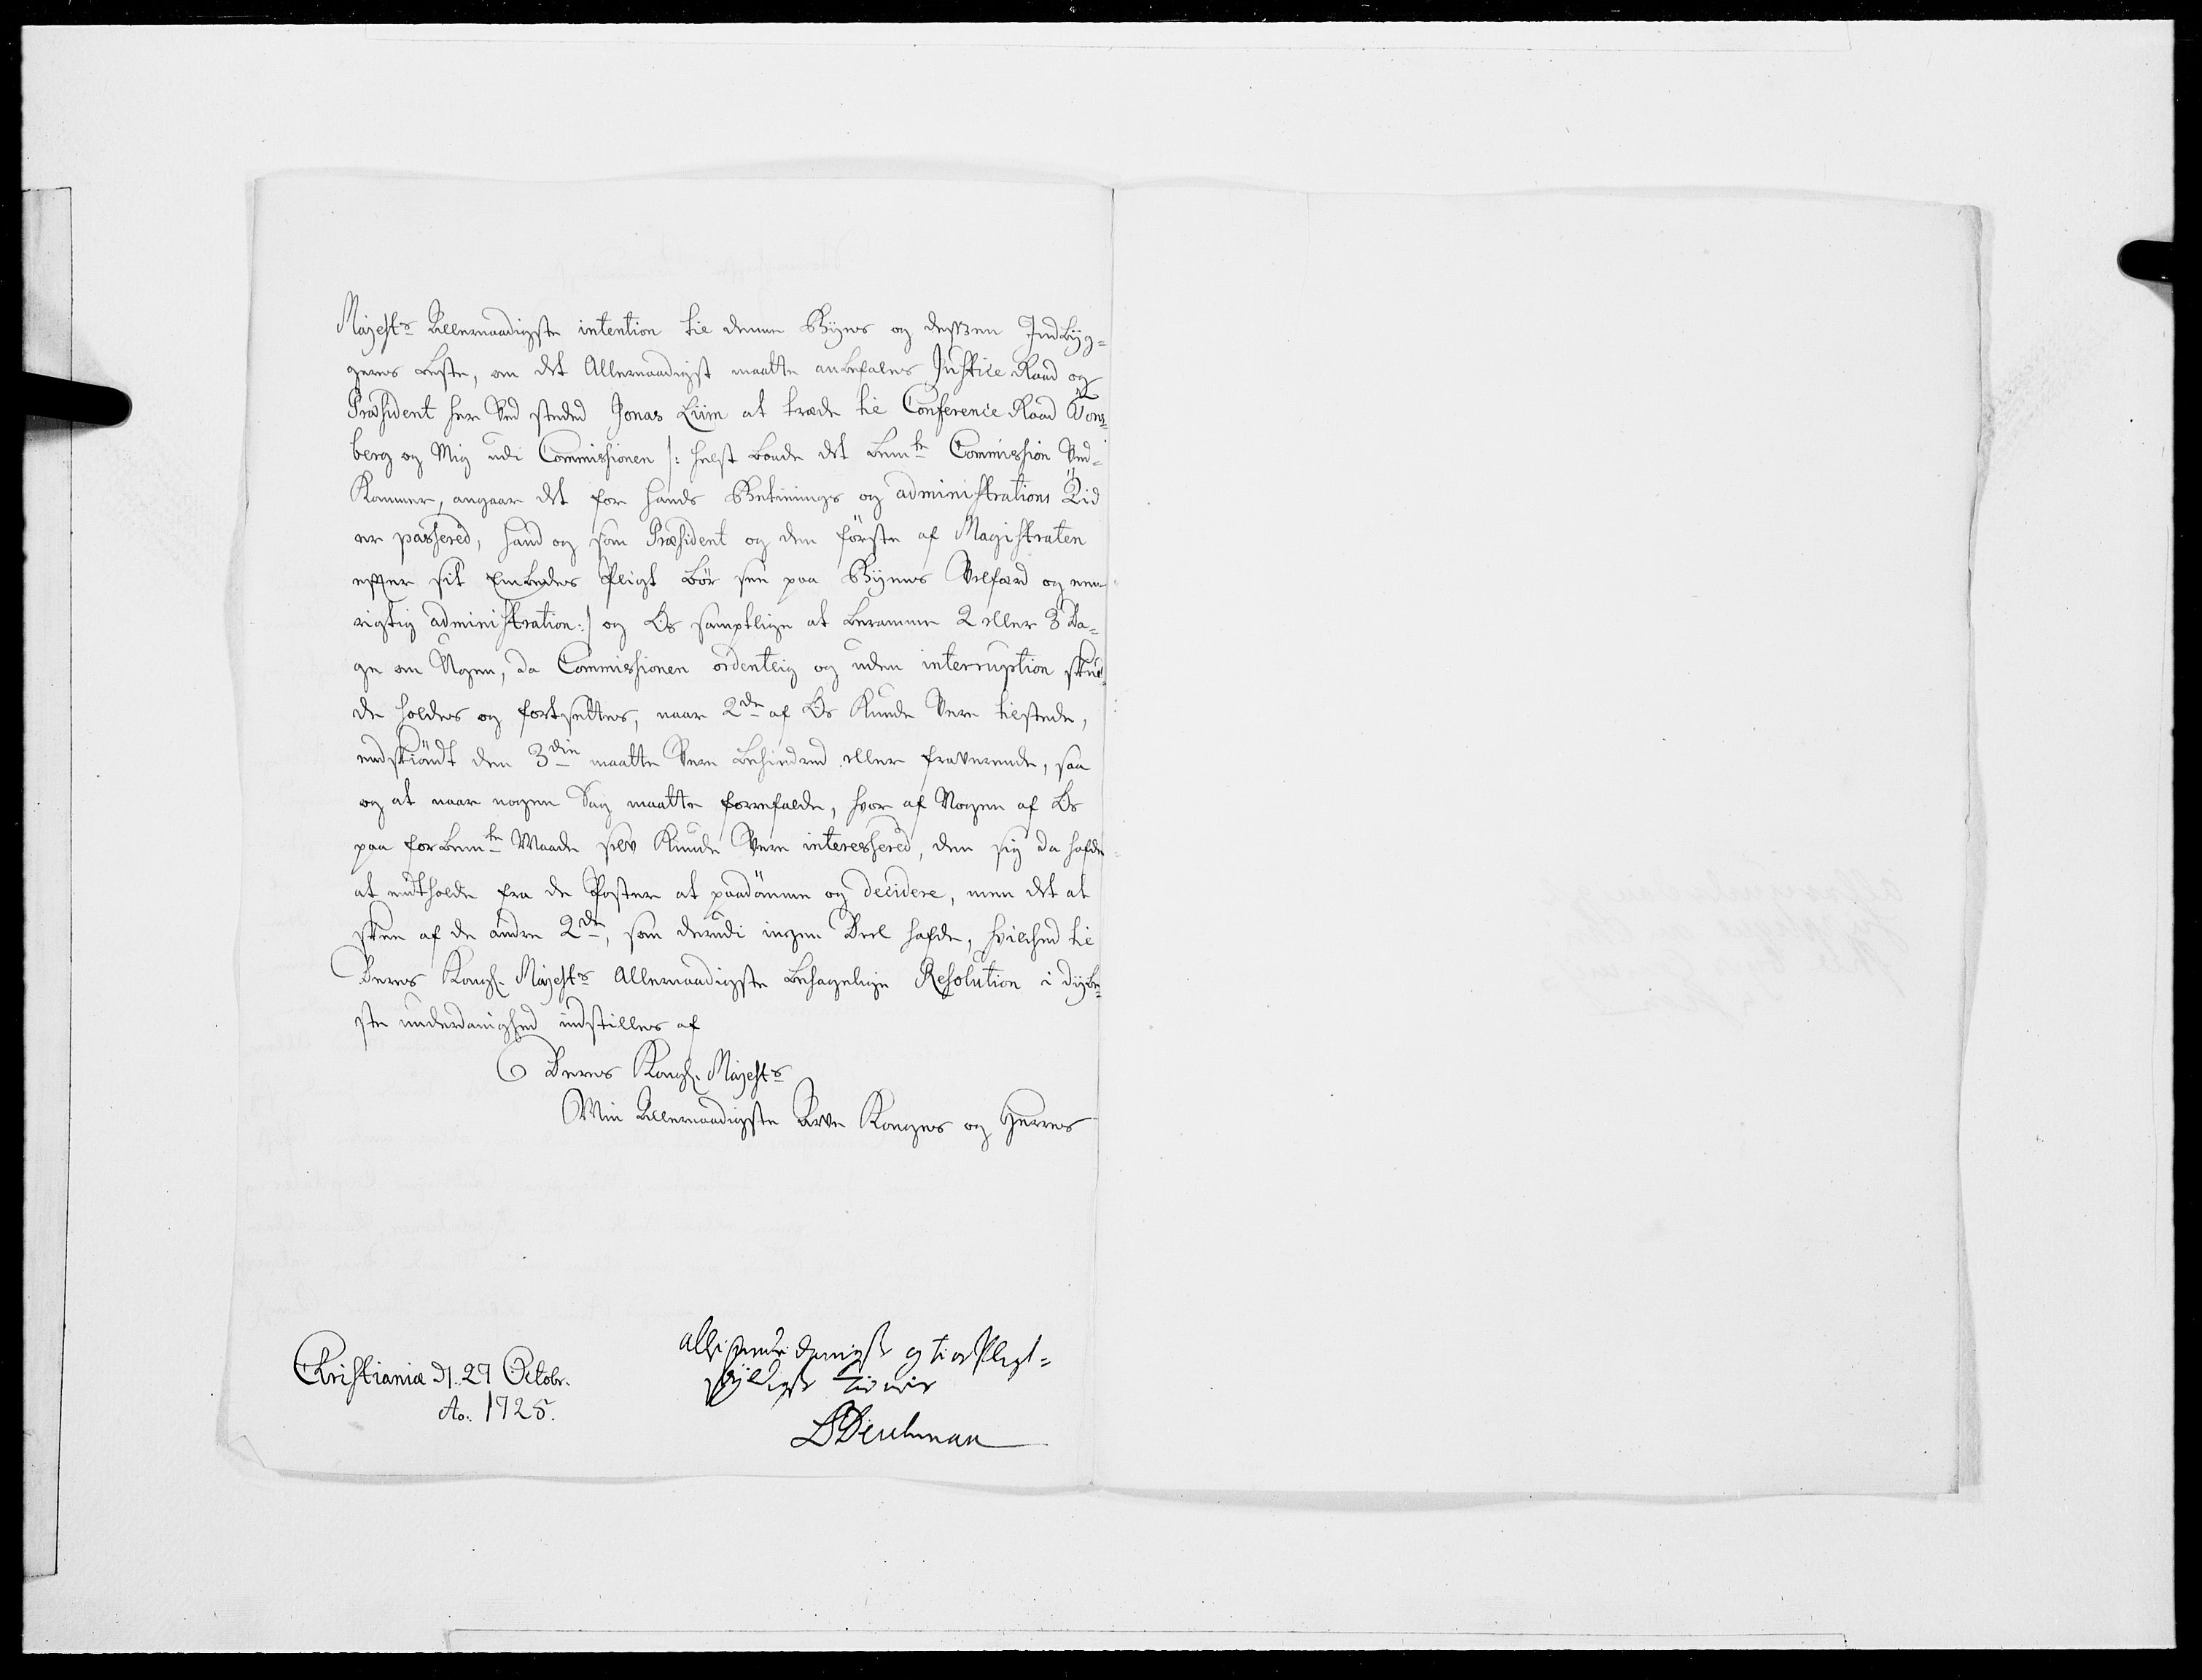 Mayests Allernaadigste intention til denne Byes og dessen Indbÿg-
geres beste, om det Allernaadigst maatte anbefales Justice Raad og
Præsident her Ved steded Jonas Liim at træde til Conference Raad Tons-
berg og Mig udi Commissionen /: helst baade det bemte Commission Ved-
Kommer, angaar det for hands Betienings og administrations Tid
er passered, hand og som Præsident og den förste af Magistraten
efter sit Embedes Pligt bör see paa Byens Velfærd og een
rigtig administration :/ og Os samptlige at beramme 2 eller 3 Da-
ge om Ugen, da Commissionen ordentlig og uden interruption skul-
de holdes og fortsettes, naar 2de af Os Kunde Være tilstede,
endskiöndt den 3die maatte Være behindred eller fraværende, saa
og at naar nogen Sag maatte forrefalde, hvor af Nogen af Os
paa forbemte Maade self Kunde Være interessered, den sig da hafde
at entholde fra de Poster at paadömme og decidere, men det at
skee af de andre 2de, som derudi ingen Deel hafde, hvilched til
Deres Kongl. Mayests Allernaadigste behagelige Resolution i dÿbe-
ste underdanighed indstilles af
Deres Kongl. Mayests
Min Allernaadigste Arve Konges og Herres
Christiania d. 27 Octobr.
Ao. 1725.
allerunderdanigst og troepligt-
skÿldigst tiener
BDeichman